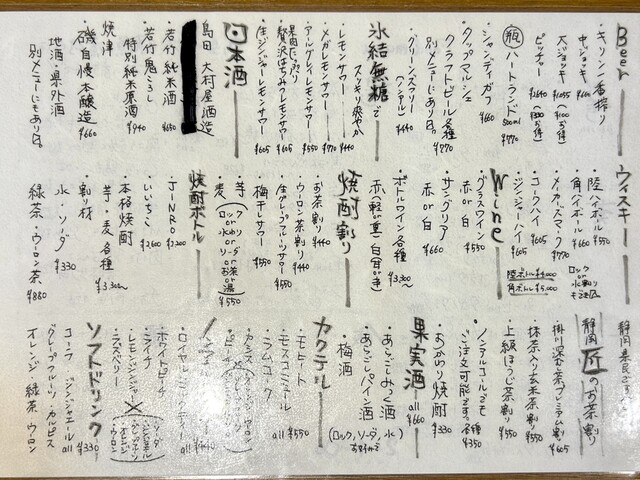 Beer
・キリン一番搾り
中ジョッキー ¥605
大ジョッキー ¥1055
ピッチャー ¥1640
瓶 ハートランド 500ml ¥770
シャンディガフ ¥660
・タップマルシェ
クラフトビール各種 ¥770
別メニューにあります。
・グリーンズフリー (ノンアル) ¥440
氷結無糖で
スッキリ爽やか
・レモンサワー ¥440
・メガレモンサワー ¥770
・アールグレイレモンサワー ¥550
贅沢はちみつレモンサワー ¥605
・生ジンジャーレモンサワー ¥605
日本酒
島田 大村屋酒造
・若竹 純米酒 ¥650
・若竹 鬼ころし
特別純米原酒 ¥940
・焼津
磯自慢 本醸造 ¥660
地酒・県外酒
別メニューにもあり〼。
ウィスキー
・陸ハイボール ¥550
・角ハイボール ¥660
・メーカーズマーク ¥770
・コークハイ ¥605
・ジンジャーハイ ¥605
ロック or 水割り もご対応
陸ボトル ¥4,000
角ボトル ¥5,000
Wine
・グラスワイン
赤 or 白 ¥550
・サングリア
赤 or 白 ¥660
・ボトルワイン 各種 ¥3,300〜
焼酎割り
・お茶割り ¥440
・ウーロン茶割り ¥440
・生グレープフルーツサワー ¥550
・梅干しサワー ¥550
・芋
・麦
ロック or 水わり or ソーダわり or お茶 or お湯 ¥550
焼酎ボトル
・JINRO ¥2,200
・いいちこ ¥2,600
・本格焼酎
芋・麦 各種 ¥3,300〜
・割り材
水・ソーダ ¥330
緑茶・ウーロン茶 ¥880
静岡県民ですもの
静岡 匠 のお茶割り
・掛川深むし茶プレミアム割り ¥605
・抹茶入り玄米茶割り ¥550
・上級ほうじ茶割り ¥550
ノンアルコールでも
ご注文可能です。各種 ¥350
・おかわり焼酎 ¥330
果実酒 all ¥660
・あらごしみかん酒
・あらごしパイン酒
・梅酒
(ロック、ソーダ、水)
カクテル
・モヒート
・モスコミュール
・ラムコーク
all ¥550
・ロイヤルミルクティー
・ホワイトピーチ
・ライチ
・レモンジンジャー
・ラズベリー
ソフトドリンク
コーラ・ジンジャエール
グレープフルーツ・カルピス
オレンジ 緑茶 ウーロン
all ¥330